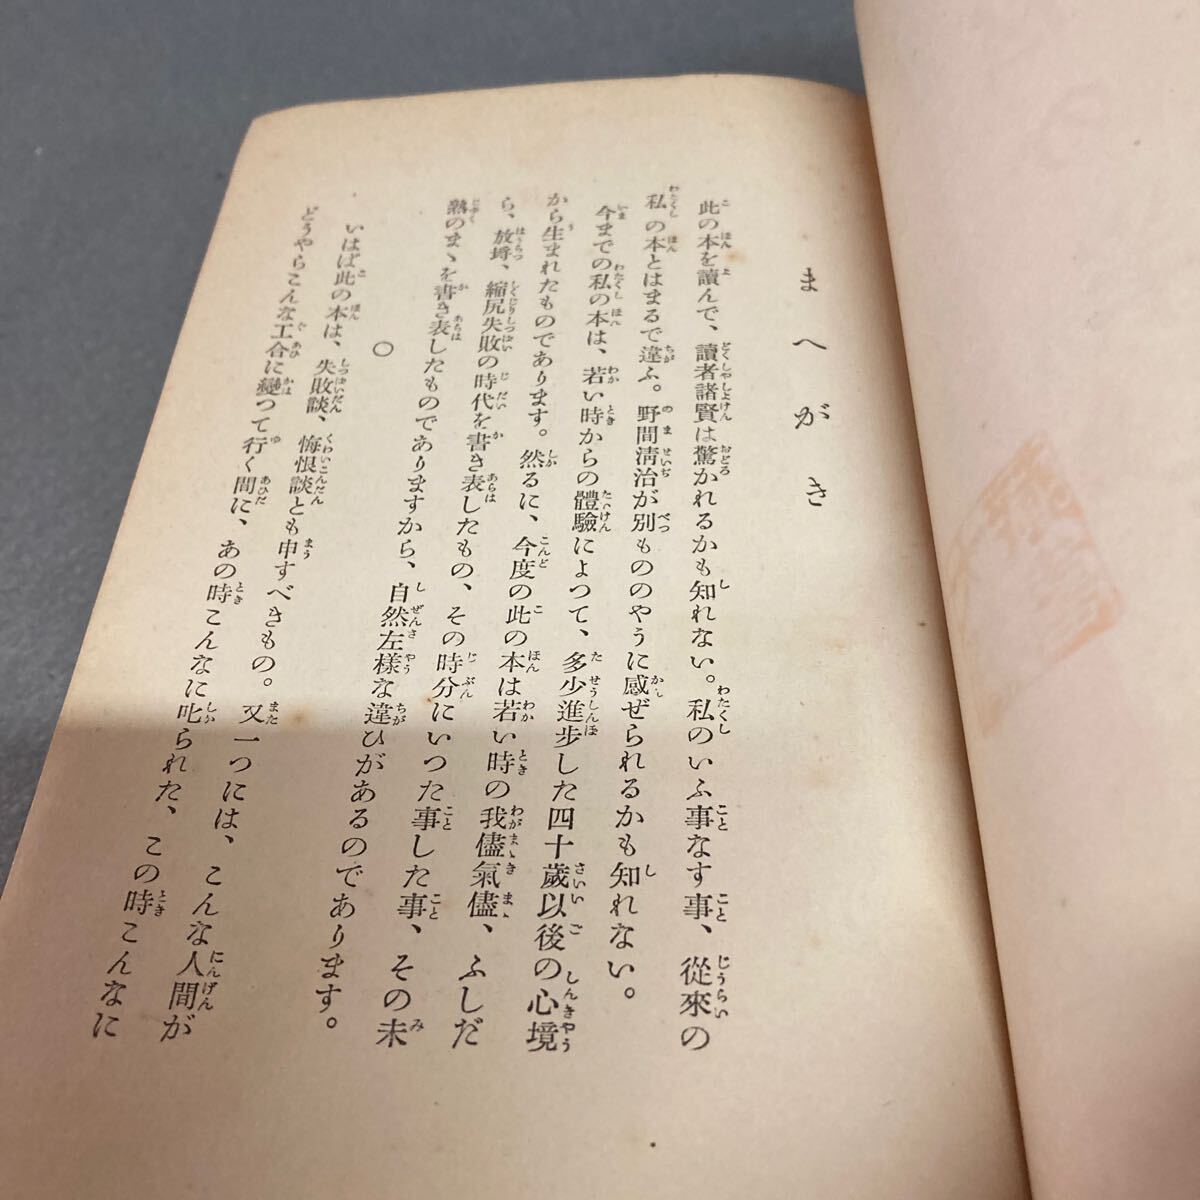 まへがき
此の本を讀んで、讀者諸賢は驚かれるかも知れない。私のいふ事なす事、從來の
私の本とはまるで違ふ。野間淸治が別もののやうに感ぜられるかも知れない。
今までの私の本は、若い時からの體驗によつて、多少進步した四十歲以後の心境
から生まれたものであります。然るに、今度の此の本は若い時の我儘氣儘、ふしだ
ら、放埒、縮尻失敗の時代を書き表したもの、その時分にいつた事した事、その未
熟のまゝを書き表したものでありますから、自然左樣な違ひがあるのであります。
○
いはば此の本は、失敗談、悔恨談とも申すべきもの。又一つには、こんな人間が
どうやらこんな工合に變つて行く間に、あの時こんなに叱られた、この時こんなに